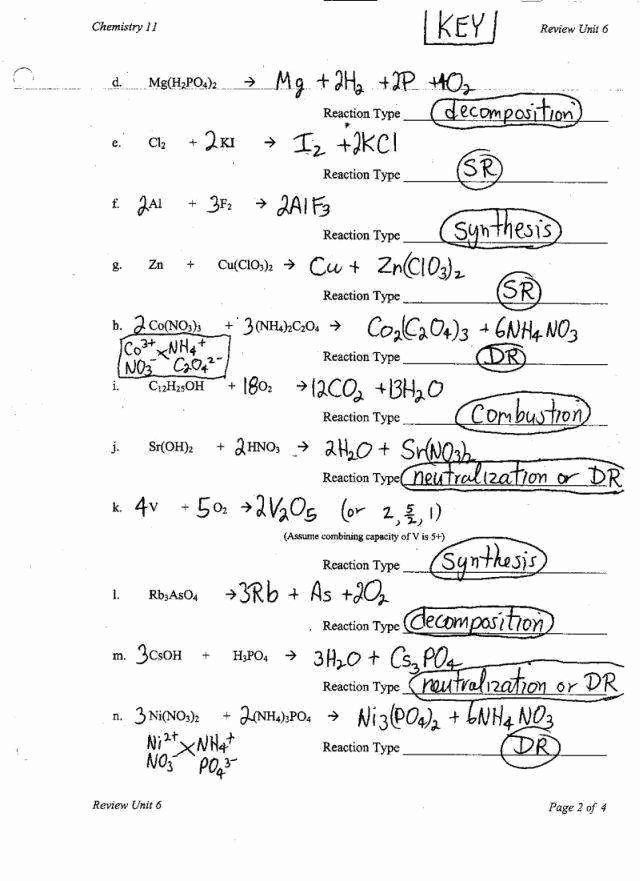 Chemistry 11 KEY Review Unit 6
d. Mg(H₂PO₄)₂ → Mg + 2H₂ + 2P + 4O₂
Reaction Type decomposition
e. Cl₂ + 2KI → I₂ + 2KCl
Reaction Type SR
f. 2Al + 3F₂ → 2AlF₃
Reaction Type Synthesis
g. Zn + Cu(ClO₃)₂ → Cu + Zn(ClO₃)₂
Reaction Type SR
h. 2Co(NO₃)₃ + 3(NH₄)₂C₂O₄ → Co₂(C₂O₄)₃ + 6NH₄NO₃
Co³⁺ NH₄⁺
Reaction Type DR
NO₃⁻ C₂O₄²⁻
i. C₁₂H₂₅OH + 18O₂ → 12CO₂ + 13H₂O
Reaction Type Combustion
j. Sr(OH)₂ + 2HNO₃ → 2H₂O + Sr(NO₃)₂
Reaction Type neutralization or DR
k. 4V + 5O₂ → 2V₂O₅ (or 2, 5/2, 1)
(Assume combining capacity of V is 5+)
Reaction Type Synthesis
l. Rb₃AsO₄ → 3Rb + As + 2O₂
Reaction Type decomposition
m. 3CsOH + H₃PO₄ → 3H₂O + Cs₃PO₄
Reaction Type neutralization or DR
n. 3Ni(NO₃)₂ + 2(NH₄)₃PO₄ → Ni₃(PO₄)₂ + 6NH₄NO₃
Ni²⁺ NH₄⁺
Reaction Type DR
NO₃⁻ PO₄³⁻
Review Unit 6 Page 2 of 4